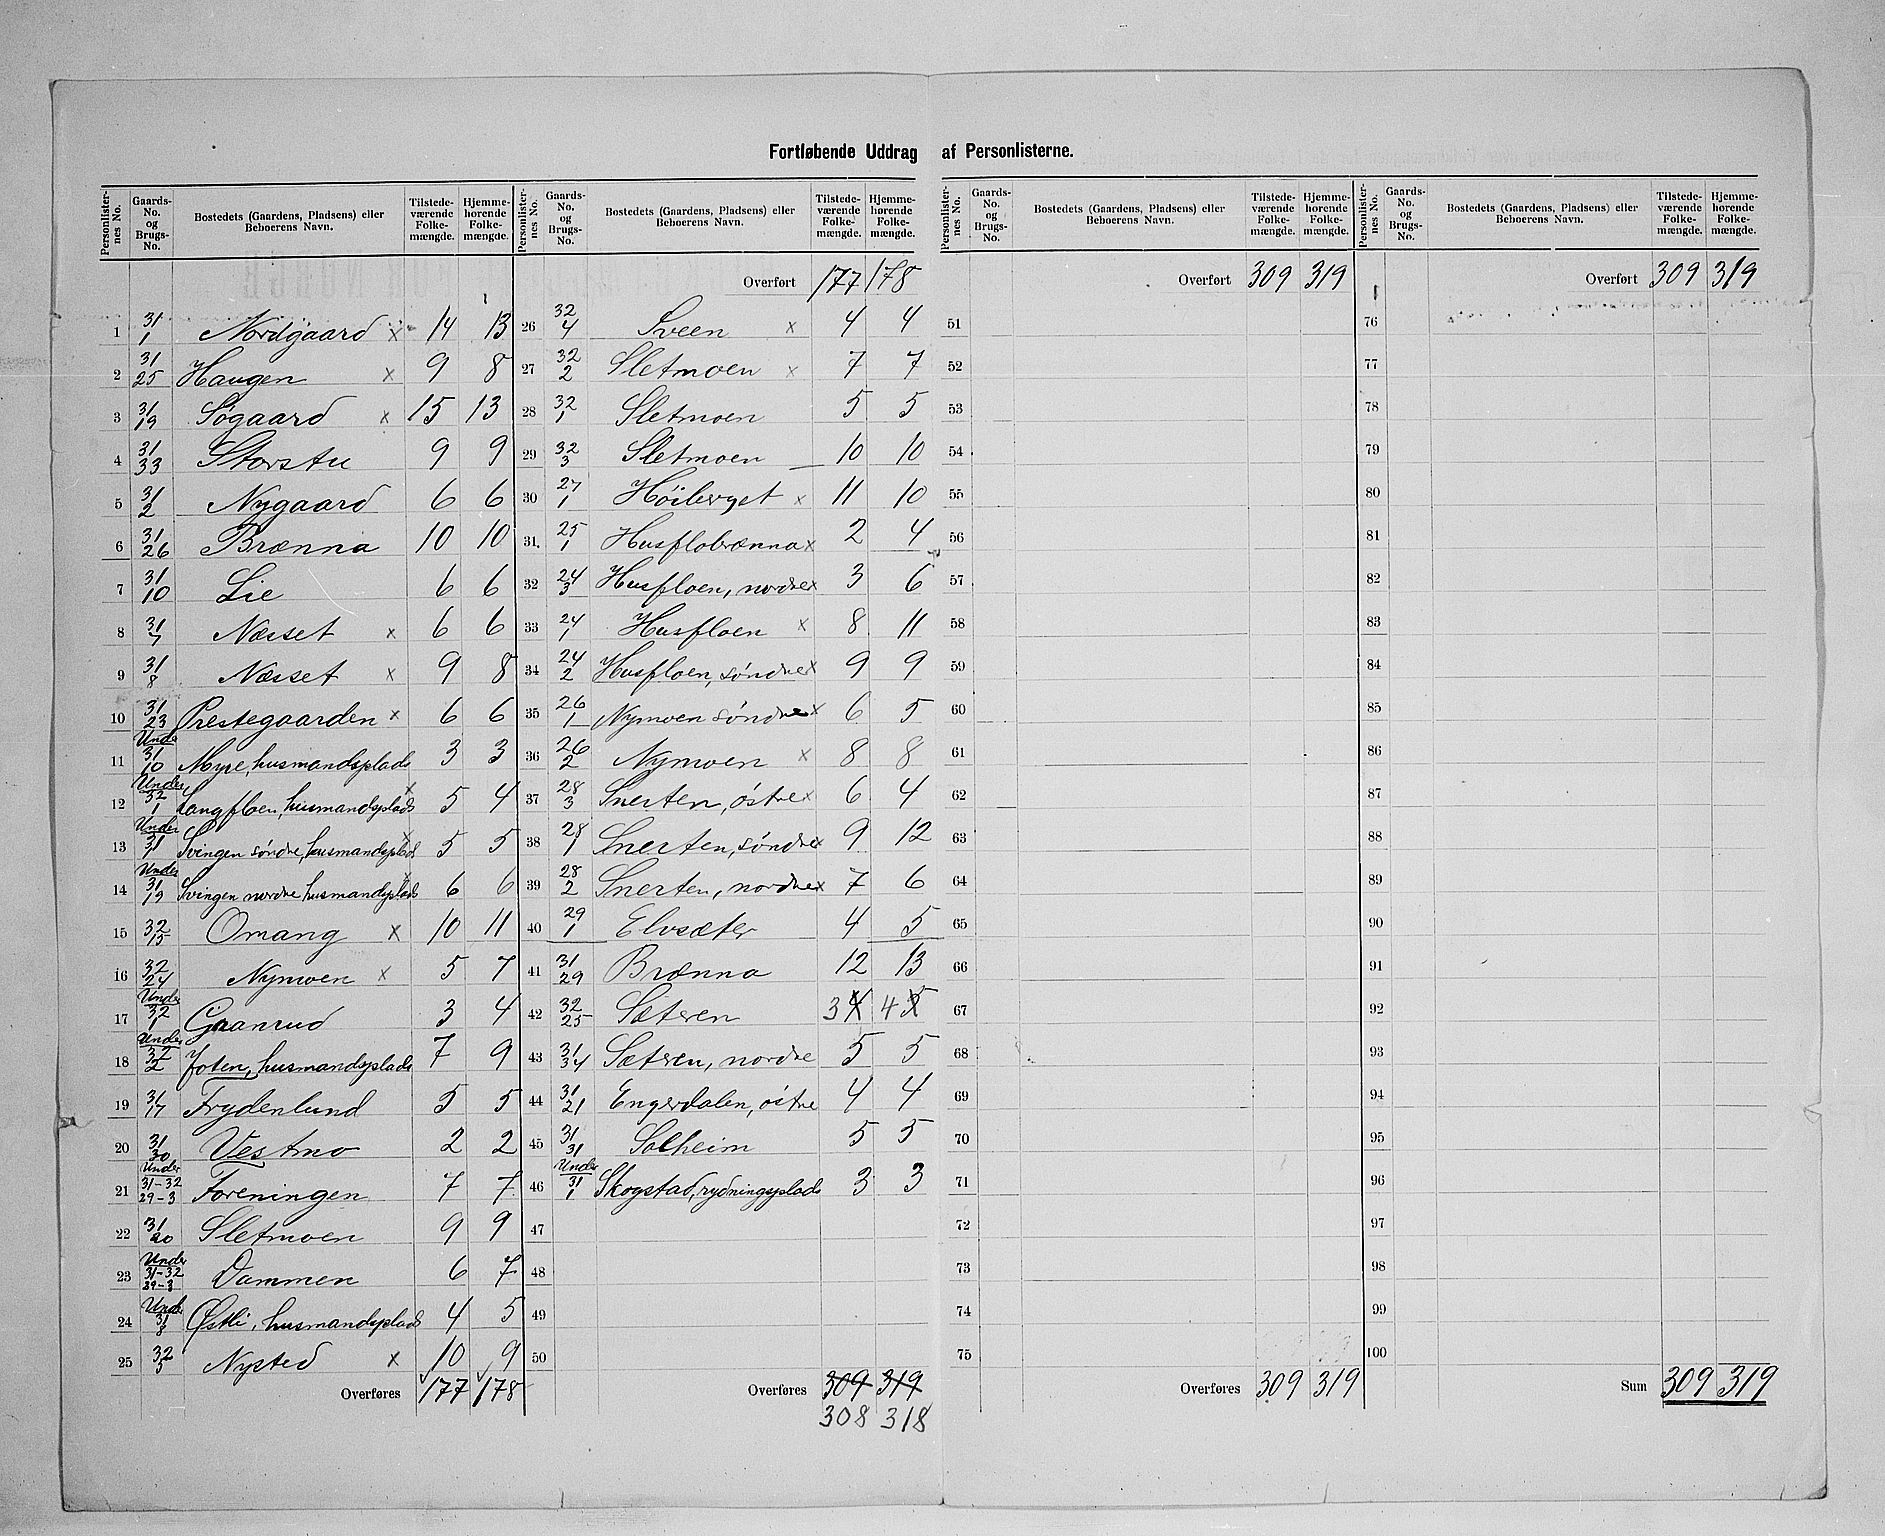 Fortløbende Uddrag af Personlisterne.
Personlister-nes No. Gaards-No. og Brugs-No. Bostedets (Gaardens, Pladsens) eller Beboerens Navn. Tilstede-værende Folke-mængde. Hjemme-hørende Folke-mængde.
1 31/1 Nordgaard x 14 13
2 31/25 Haugen x 9 8
3 31/19 Søgaard x 15 13
4 31/33 Storstu 9 9
5 31/2 Nygaard 6 6
6 31/26 Brænna 10 10
7 31/10 Lie 6 6
8 31/7 Næsset x 6 6
9 31/8 Næsset x 9 8
10 31/23 Prestegaarden x 6 6
11 Under 31/10 Myre, husmandsplads 3 3
12 Under 32/1 Langfloen, husmandsplads x 5 4
13 Under 31/1 Svingen søndre, husmandsplads x 5 5
14 Under 31/13 Svingen nordre husmandsplads x 6 6
15 32/15 Omang x 10 11
16 32/24 Nymoen x 5 7
17 Under 32/1 Granrud 3 4
18 Under 32/2 Joten, husmandsplads 7 9
19 31/17 Frydenlund 5 5
20 31/30 Vestmo 2 2
21 Under 31-32 29-3 Foreningen 7 7
22 31/20 Sletmoen 9 9
23 Under 31-32 29-3 Dammen 6 7
24 Under 31/8 Østli, husmandsplads 4 5
25 32/5 Nysted x 10 9
Overføres 177 178
Personlister-nes No. Gaards-No. og Brugs-No. Bostedets (Gaardens, Pladsens) eller Beboerens Navn. Tilstede-værende Folke-mængde. Hjemme-hørende Folke-mængde.
Overført 177 178
26 32/4 Sveen x 4 4
27 32/2 Sletmoen x 7 7
28 32/1 Sletmoen 5 5
29 32/3 Sletmoen 10 10
30 27/1 Høiberget x 11 10
31. 25/1 Husflobrænna x 2 4
32 24/3 Husfloen, nordre x 3 6
33 24/1 Husfloen x 8 11
34 24/2 Husfloen, søndre x 9 9
35 26/1 Nymoen søndre x 6 5
36 26/2 Nymoen x 8 8
37 28/3 Snerten, østre x 6 4
38 28/1 Snerten, søndre x 9 12
39 28/2 Snerten, nordre x 7 6
40 29/1 Elvsæter 4 5
41 31/29 Brænna 12 13
42 32/25 Sæteren 3 4 4 5
43 31/34 Sæteren, nordre 5 5
44 31/21 Engerdalen, østre 4 4
45 31/31 Solheim 5 5
46 Under 31/1 Skogstad, rydningsplads 3 3
47
48
49
50
Overføres 309 319
308 318
Personlister-nes No. Gaards-No. og Brugs-No. Bostedets (Gaardens, Pladsens) eller Beboerens Navn. Tilstede-værende Folke-mængde. Hjemme-hørende Folke-mængde.
Overført 309 319
51
52
53
54
55
56
57
58
59
60
61
62
63
64
65
66
67
68
69
70
71
72
73
74
75
Overføres 309 319
Personlister-nes No. Gaards-No. og Brugs-No. Bostedets (Gaardens, Pladsens) eller Beboerens Navn. Tilstede-værende Folke-mængde. Hjemme-hørende Folke-mængde.
Overført 309 319
76
77
78
79
80
81
82
83
84
85
86
87
88
89
90
91
92
93
94
95
96
97
98
99
100
Sum 309 319